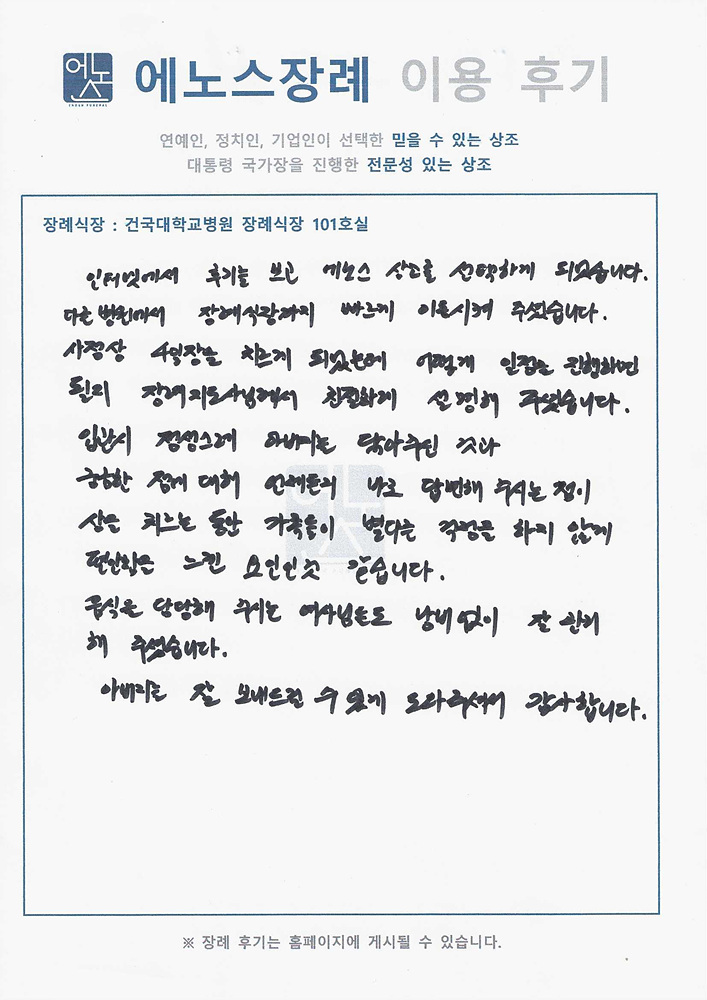 에노스
ENOSS FUNERAL
에노스장례 이용 후기
연예인, 정치인, 기업인이 선택한 믿을 수 있는 상조
대통령 국가장을 진행한 전문성 있는 상조
장례식장 : 건국대학교병원 장례식장 101호실
인터넷에서 후기를 보고 에노스 상조를 선택하게 되었습니다.
다른 병원에서 장례식장까지 빠르게 이동시켜 주셨습니다.
사정상 4일장을 치르게 되었는데 어떻게 일정을 진행하면
될지 장례지도사님께서 친절하게 설명해 주셨습니다.
입관시 정성스레 아버지를 닦아주신 것과
궁금한 점에 대해 언제든지 바로 답변해 주시는 점이
상을 치르는 동안 가족들이 별다른 걱정을 하지 않게
편안함을 느낀 요인인것 같습니다.
음식을 담당해 주시는 여사님들도 낭비없이 잘 관리
해 주셨습니다.
아버지를 잘 보내드릴 수 있게 도와주셔서 감사합니다.
※ 장례 후기는 홈페이지에 게시될 수 있습니다.